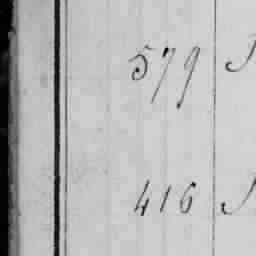 579
416